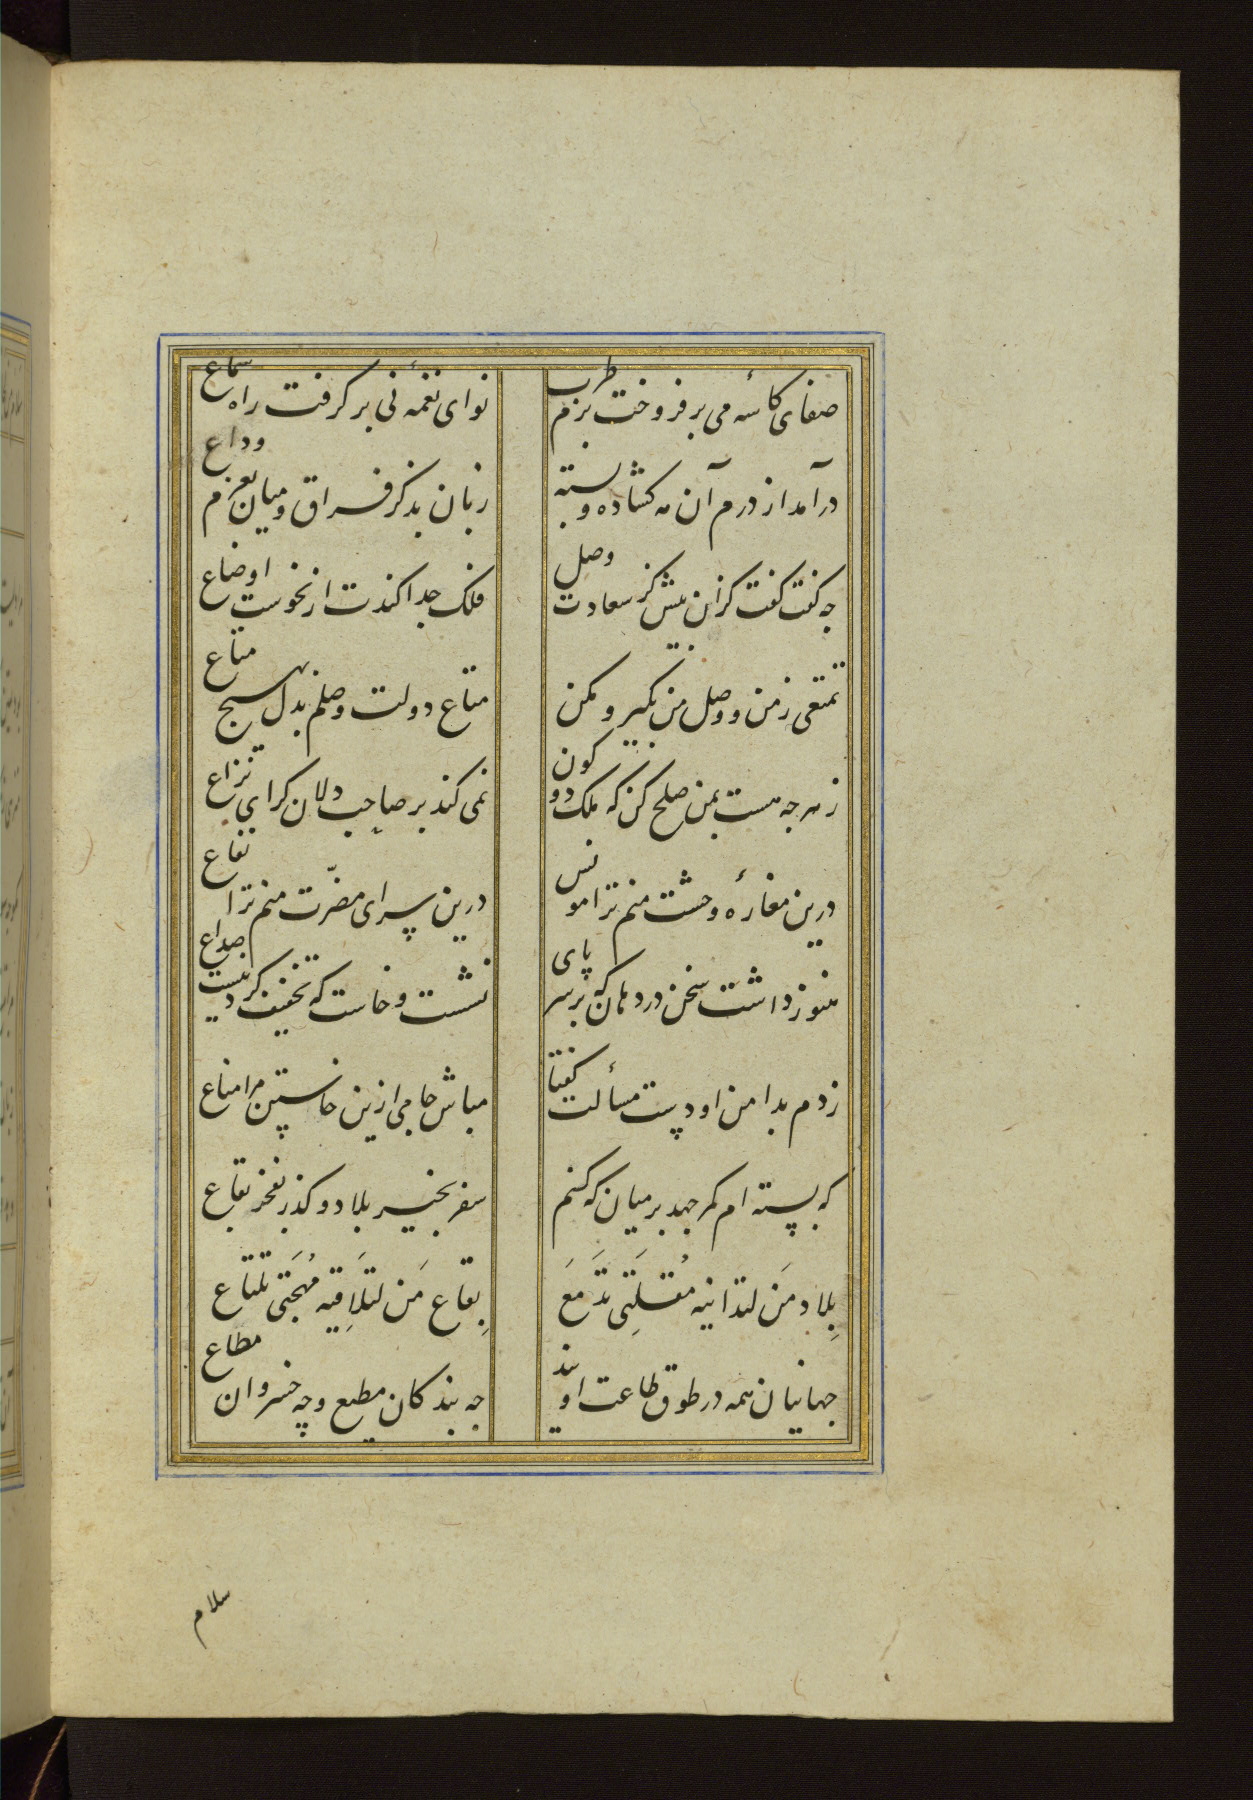 صفای کاسۀ می بر فروخت بزم طرب
نوای نغمۀ نی بر کرفت راه سماع
در آمد از درم آن مه کشاده و بسته
زبان بذکر فراق و میان بعزم وداع
چه کفت کفت کزان پیش کز سعادت وصل
فلک جدا کندت از نحوست اوضاع
تمتعی ز من و وصل من بکیر و مکن
متاع دولت وصلم بدل بهیچ متاع
ز هر چه هست بمن صلح کن که ملک دو کون
نمی کند بر صاحب دلان کرای نزاع
درین مغارۀ وحشت منم ترا مونس
درین سرای مضرّت منم ترا نفاع
هنوز داشت سخن در دهان که بر سر پای
نشست و خاست که تخفیف کردنیست صداع
زدم بدامن او دست مسألت کفتا
مباش جامی ازین خاستن مرا مناع
که بسته ام کمر جهد بر میان که کنم
سفر بخیر بلاد و کذر بفخر بقاع
بِلاد مَن لتدانیه مُقلَتِی تَدمَعَ
بِقاع مَن لتلَاقِیه مُهجَتی تلتاع
جهانیان همه در طوق طاعت اویند
چه بندکان مطیع و چه خسروان مطاع
سلام